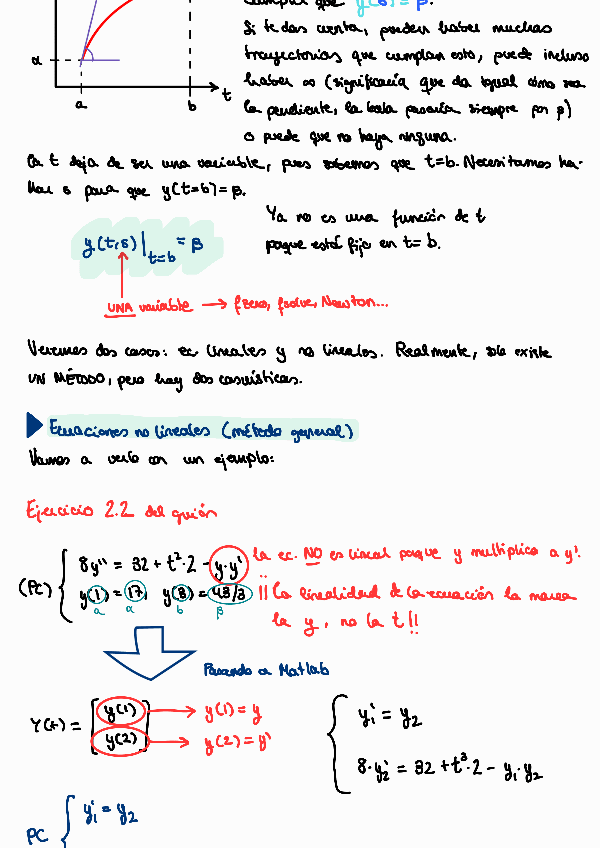 cumplir que y(b) = β.
Si te das cuenta, pueden haber muchas
trayectorias que cumplan esto, puede incluso
haber ∞ (significaría que da igual cómo sea
la pendiente, la bola pasaría siempre por β)
o puede que no haya ninguna.
α
a b t
La t deja de ser una variable, pues sabemos que t=b. Necesitamos ha-
llar s para que y(t=b)=β.
y(t,s)|t=b = β
Ya no es una función de t
porque está fija en t=b.
UNA variable → fzero, fsolve, Newton...
Veremos dos casos: ec lineales y no lineales. Realmente, sólo existe
UN MÉTODO, pero hay dos casuísticas.
Ecuaciones no lineales (método general)
Vamos a verlo con un ejemplo:
Ejercicio 2.2 del guión
(PC) { 8y'' = 32 + t²·2 - y·y' la ec. NO es lineal porque y multiplica a y'.
y(1) = 17, y(3) = 43/3 ¡¡La linealidad de la ecuación la marca
a α b β la y, no la t!!
Pasando a Matlab
Y(t) = [y(1) → y(1) = y
y(2)] → y(2) = y'
{ y₁' = y₂
8·y₂' = 32 + t³·2 - y₁·y₂
PC { y₁' = y₂